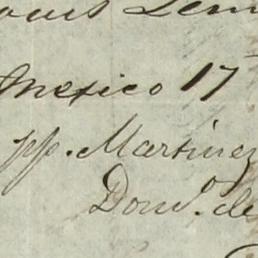 Mexico 17
pp. Martinez
Dom.º de